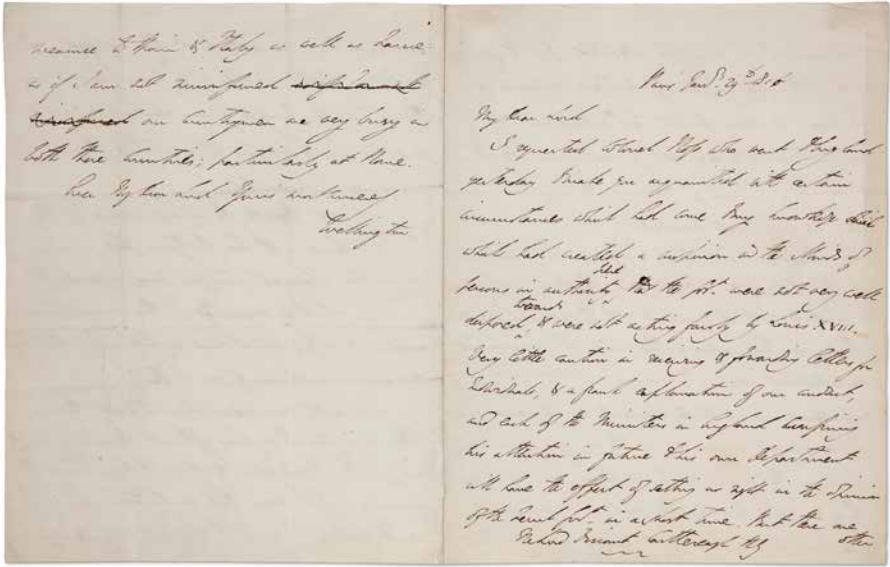 & Italy as well as France.
as if I am not misinformed
 our Countrymen are very busy in
both these Countries; particularly at Rome.
 My Dear Lord Yours most sincerely
Wellington
Paris Jany. 29th 1816
My Dear Lord
I requested Colonel Ross who went to England
yesterday to make you acquainted with certain
circumstances which had come to my knowledge
which had created a suspicion in the Minds of
persons in authority that the Govt. were not very well
disposed towards, & were not acting fairly by Louis XVIII.
Very little caution in receiving & forwarding letters for
Individuals, & a frank explanation of our conduct,
and each of the Ministers in England confining
his attention in future to his own Department
will have the effect of setting us right in the opinion
of the French Govt. in a short time. But there are
Viscount Castlereagh KG
other